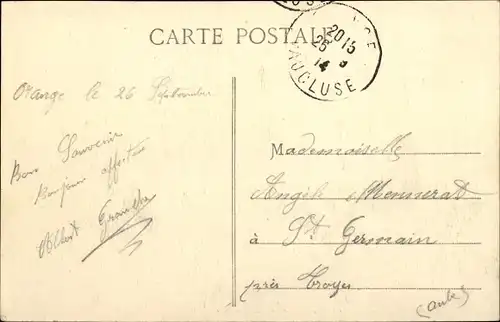 CARTE POSTALE
20 15
26 9
14
VAUCLUSE
Orange le 26 Septembre
Bon Souvenir
Bonjour affectueux
Albert
Mademoiselle
Angèle Mennerat
à St Germain
près Troyes
(Aube)